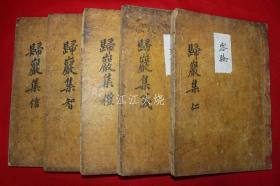 歸巖集仁
歸巖集義
歸巖集禮
歸巖集智
歸巖集信